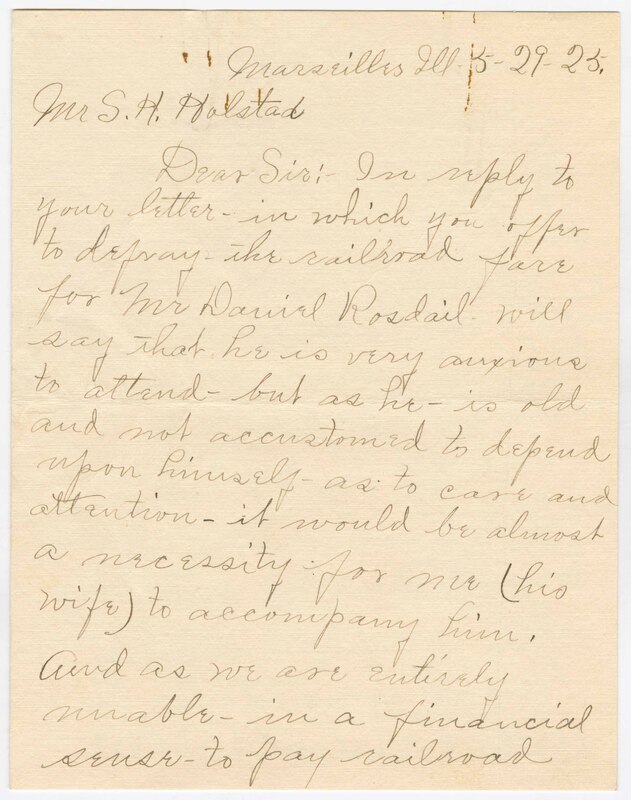 Marseilles Ill - 5-29-25.
Mr S. H. Holstad
Dear Sir:- In reply to
your letter - in which you offer
to defray - the railroad fare
for Mr Daniel Rosdail - will
say that he is very anxious
to attend - but as he - is old
and not accustomed to depend
upon himself - as to care and
attention - it would be almost
a necessity for me (his
wife) to accompany him.
And as we are entirely
unable - in a financial
sense - to pay railroad